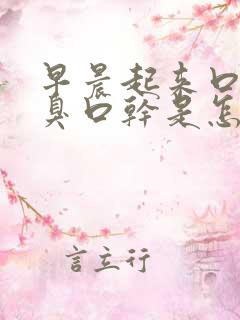 早晨起来口
臭口幹是怎
言立行